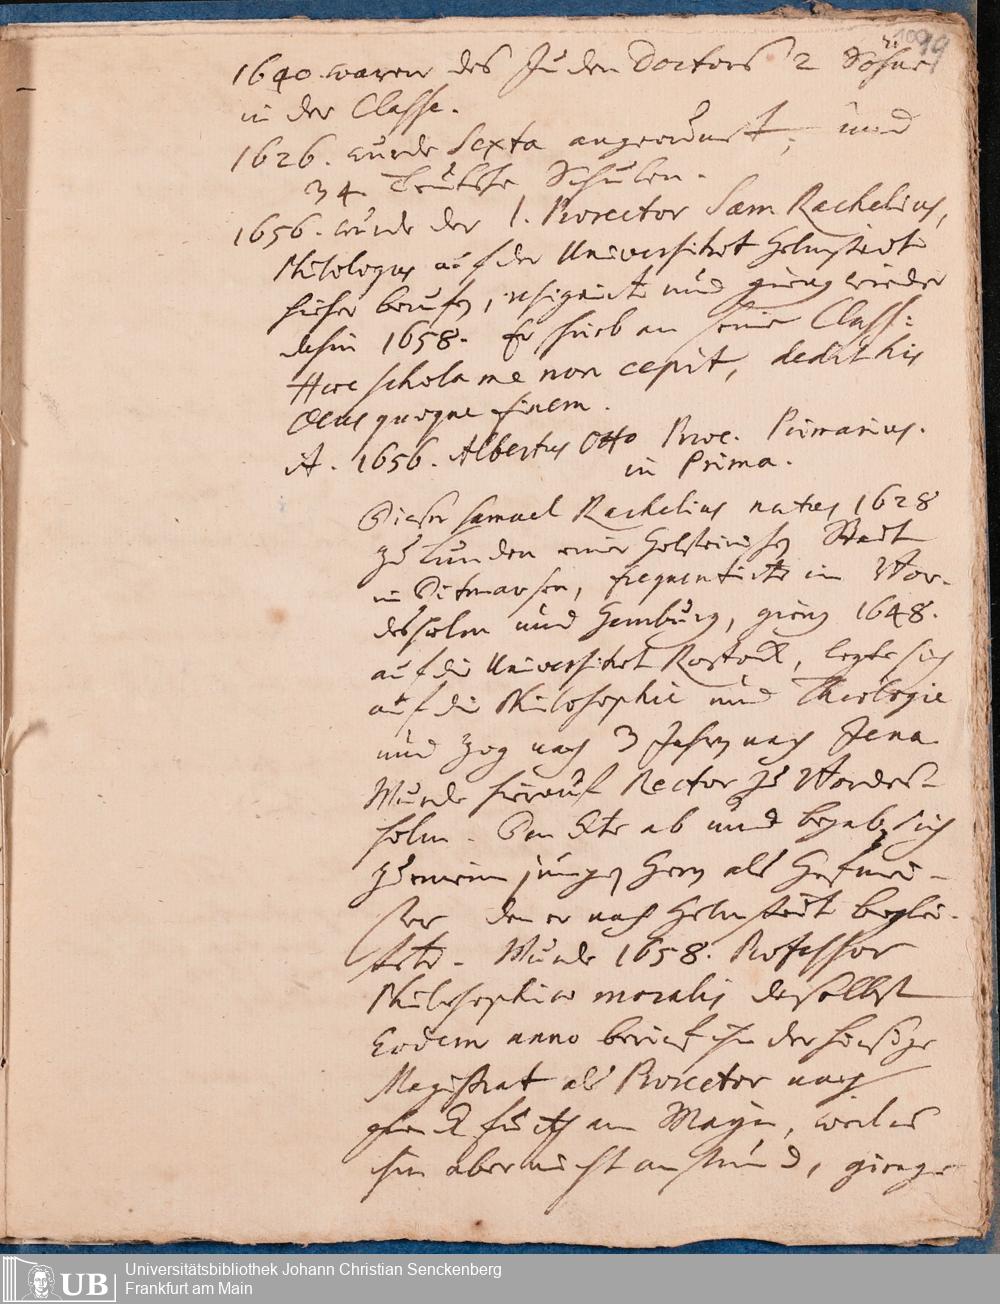 99
1640. waren des Juden Doctors 2 Söhne
in der Classe.
1626. wurde Sexta angeordnet; und
34. Teutsche Schulen.
1656. wurde der 1. Prorector Sam Rachelius,
Philologus auf der Universitaet Helmstedt
hieher beruffen, resignirte und gieng wieder
dahin 1658. Er schrieb an seine Class:
Haec schola me non cepit, dedit his
Deus quoque finem.
A. 1656. Albertus Otto Proc. Primarius.
in Prima.
Dieser Samuel Rachelius natus 1628
zu Lunden einer Holsteinischen Stadt
in Ditmarsen, frequentirte in Bor-
desholm und Hamburg, gieng 1648.
auf die Universitaet Rostock, legte sich
auf die Philosophie und Theologie
und zog nach 3 Jahren nach Jena
Wurde hierauf Rector zu Bordes-
holm. Dankte ab und begab sich
zu einem jungen Herrn als Hofmei-
ster den er nach Helmstedt beglei-
tete. Wurde 1658. Professor
Philosophiae moralis daselbst
Eodem anno berief ihn der hiesige
Magistrat als Prorector nach
Franckfurth am Mayn, weil es
ihm aber nicht anstund, gienge
UB
Universitätsbibliothek Johann Christian Senckenberg
Frankfurt am Main